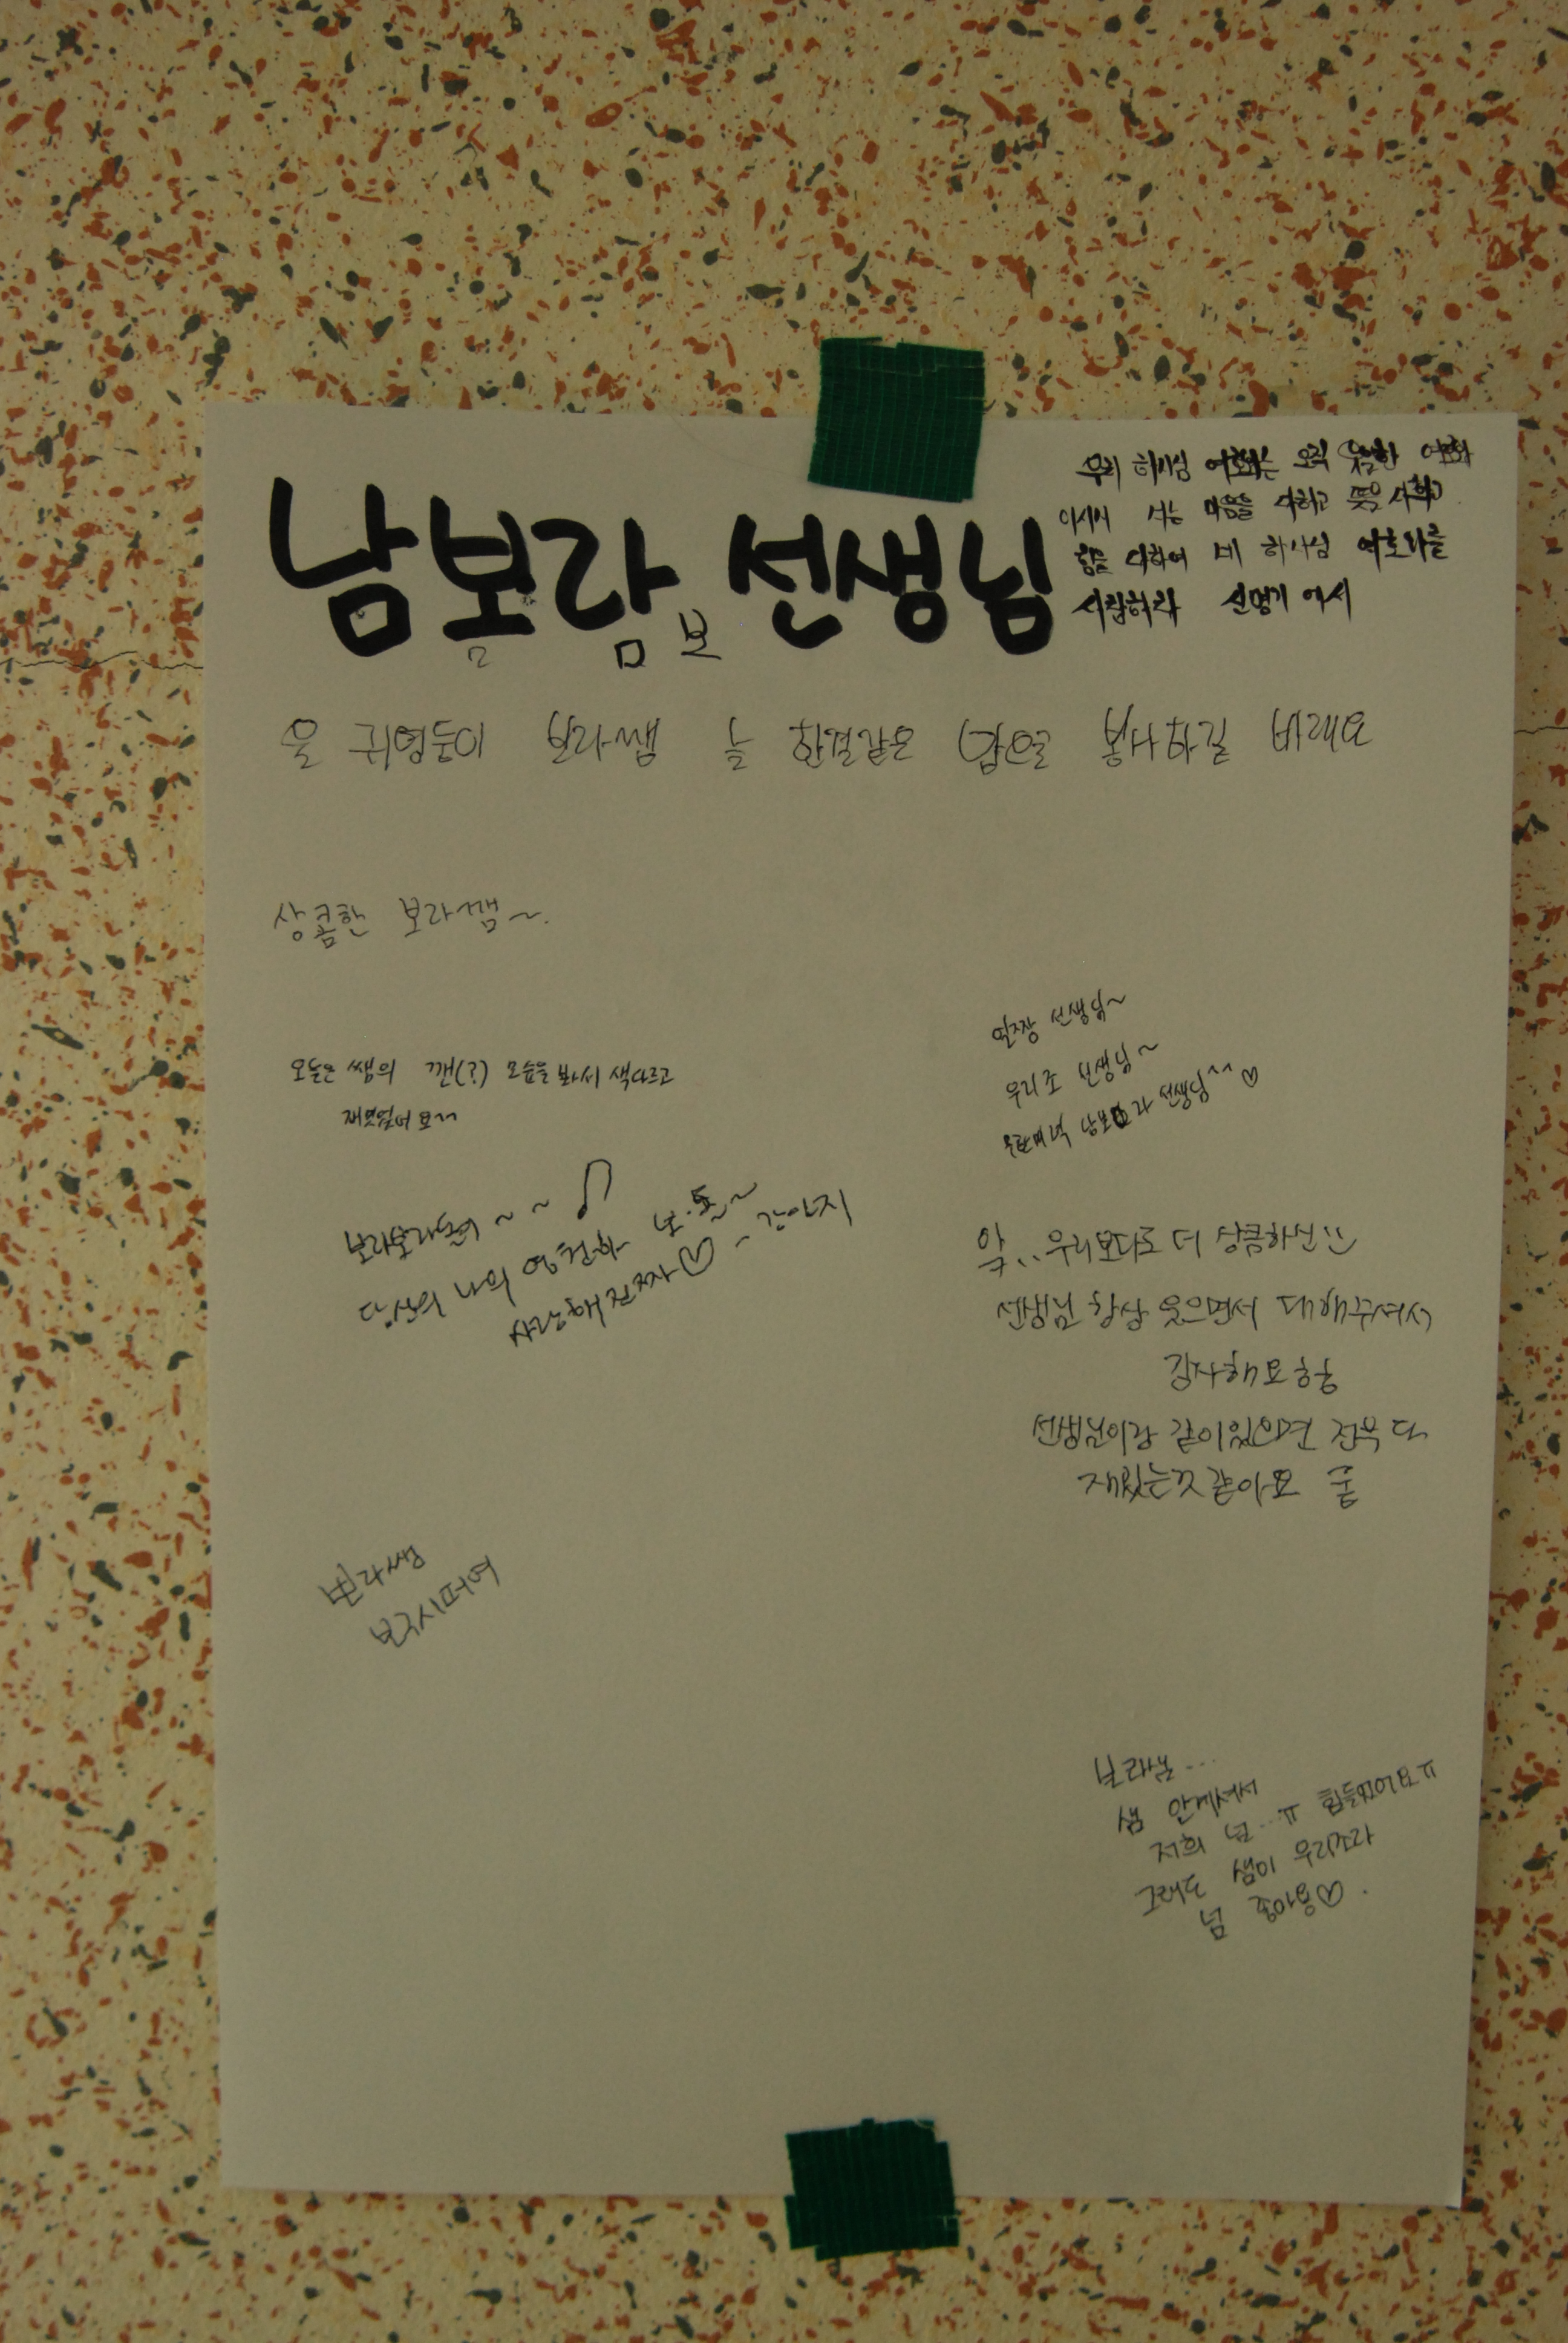 남보라 선생님
ㅁ ㅁ 보
우리 하나님 여호와는 오직 유일한 여호와
이시니 너는 마음을 다하고 뜻을 다하고
힘을 다하여 네 하나님 여호와를
사랑하라 신명기 에서
울 귀염둥이 보라쌤 늘 한결같은 봉사하길 바래요
상콤한 보라쌤~.
오늘은 쌤의 깬(?) 모습을 봐서 색다르고
선생님~
우리조 선생님~
남보라 선생님~ ♡
보라보라돌이 ~ ~ ♪
사랑해 진짜 ♡ - 강아지
앜... 우리보다도 더 상큼하신
선생님 항상 웃으면서 대해주셔서
감사해요홍홍
선생님이랑 같이있으면 전욱 더
재밌는것같아요 훗
보라쌤
보구시퍼여
보라쌤...
쌤 안계셔서
저희 넘...ㅠ 힘들었어요ㅠ
그래도 쌤이 우리조라
넘 좋아용♡.